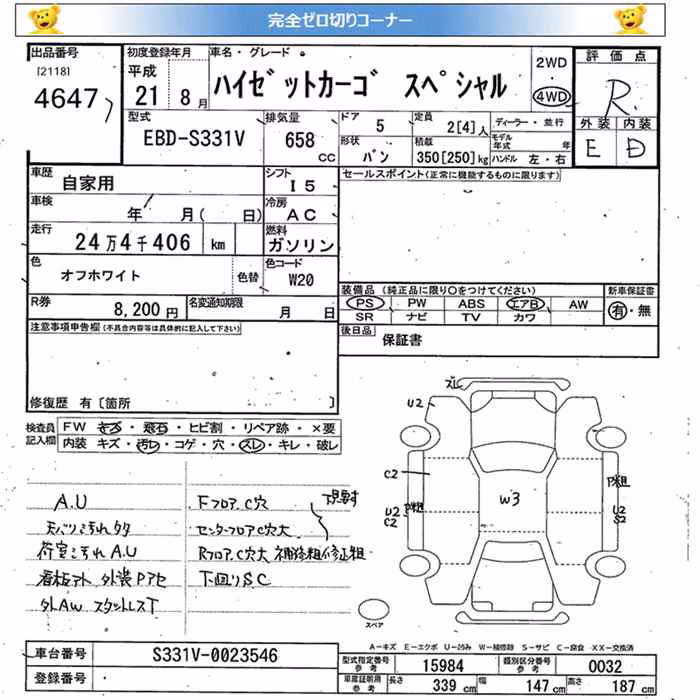 完全ゼロ切りコーナー
出品番号
[2118]
4647
初度登録年月
平成
21 8月
車名・グレード
ハイゼットカーゴ スペシャル
2WD
4WD
評価点
R
外装 内装
E D
型式
EBD-S331V
排気量
658
CC
ドア
5
定員
2[4]人
ディーラー・並行
モデル年式 年
形状
バン
積載
350[250]kg
ハンドル 左・右
車歴
自家用
シフト
I5
セールスポイント(正常に機能するものに限ります)
車検
年 月( 日)
冷房
AC
走行
24万4千406 km
燃料
ガソリン
色
オフホワイト
色替
色コード
W20
装備品 (純正品に限り○をつけてください)
新車保証書
PS PW ABS エアB AW
有・無
SR ナビ TV カワ
R券
8,200円
名変通知期限
月 日
後日品
保証書
注意事項申告欄(不具合内容等は具体的に記入して下さい)
修復歴 有[箇所 ]
検査員記入欄
FW キズ・飛石・ヒビ割・リペア跡・×要
内装 キズ・汚レ・コゲ・穴・スレ・キレ・破レ
ズレ
U2
C2
U2
C2
P粗
W3
P粗
U2
S2
A.U
天バリ汚れ多タ
荷室汚れA.U
看板アト 外装Pアセ
外AW スタットレスT
Fフロア.C穴
センターフロアC穴大
Rフロア.C穴大 補修粗修正粗
下回りSC
スペア
A-キズ E-エクボ U-凹み W-補修跡 S-サビ C-腐食 XX-交換済
車台番号
S331V-0023546
登録番号
型式指定番号
参考
15984
類別区分番号
参考
0032
車庫証明用
参考
長さ
339 cm
幅
147 cm
高さ
187 cm